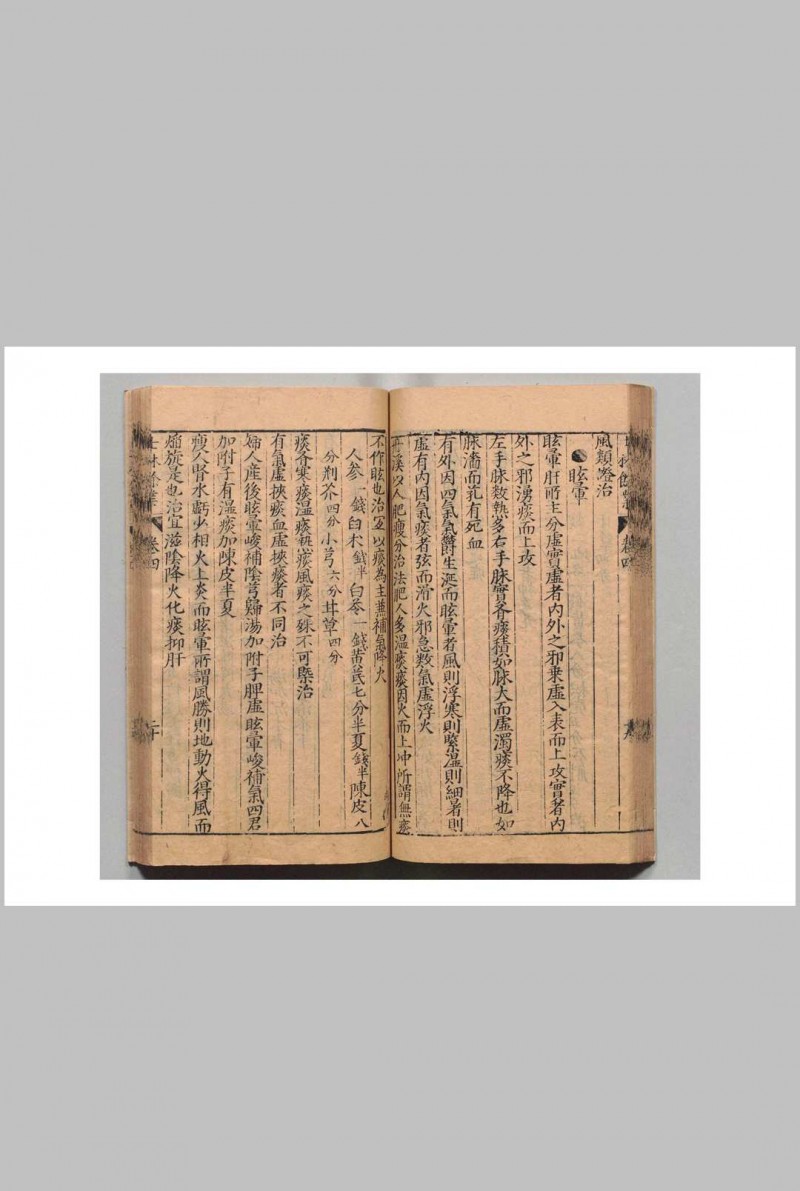 風類證治
眩暈
眩暈肝所主分虛實虛者內外之邪乗虛入表而上攻實者內
外之邪湧痰而上攻
左手脉數熱多右手脉實者痰積如脉大而虛濁痰不降也如
脉濇而芤有死血
有外因四氣氣欝生涎而眩暈者風則浮寒則緊溫則細暑則
虛有內因氣痰者弦而滑火邪急數氣虛浮火
丹溪以人肥瘦分治法肥人多溫痰痰因火而上冲所謂無痰
不作眩也治宜以痰為主兼補氣降火
人參一錢白术錢半白苓一錢黄芪七分半夏錢半陳皮八
分荆芥四分小芎六分甘草四分
痰各寒痰溫痰熱痰風痰之殊不可槩治
有氣虛挾痰血虛挾痰者不同治
婦人産後眩暈峻補陰芎歸湯加附子脾虛眩暈峻補氣四君
加附子有溫痰加陳皮半夏
瘦人腎水虧少相火上炎而眩暈所謂風勝則地動火得風而
熖旋是也治宜滋陰降火化痰抑肝
卷四
二十